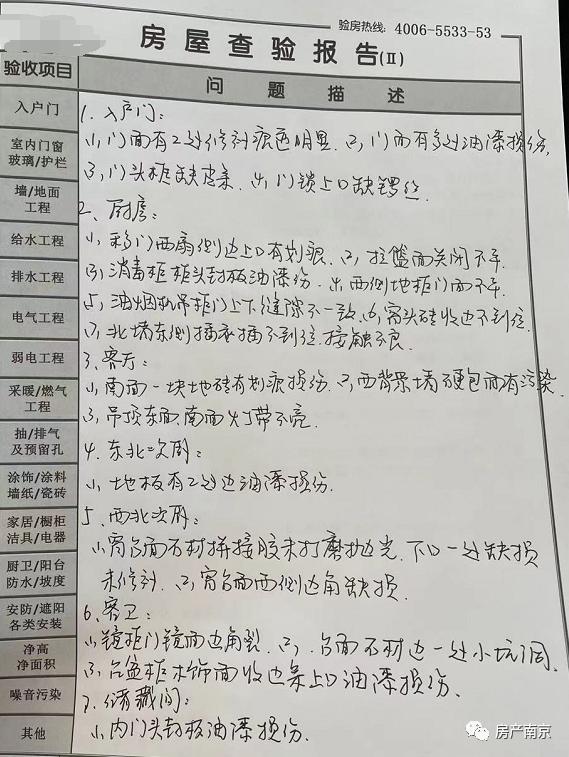 验房热线: 4006-5533-53
房屋查验报告(II)
验收项目
问题描述
入户门
室内门窗
玻璃/护栏
墙/地面
工程
给水工程
排水工程
电气工程
弱电工程
采暖/燃气
工程
抽/排气
及预留孔
涂饰/涂料
墙纸/瓷砖
家居/橱柜
洁具/电器
厨卫/阳台
防水/坡度
安防/遮阳
各类安装
净高
净面积
噪音污染
其他
1. 入户门:
(1, 门面有2处修补痕色明显. (2, 门面有多处油漆损伤,
(3, 门头柜缺皮条. (4, 门锁上口缺锣丝.
2、厨房:
(1, 移门西扇侧边上口有划痕. (2, 拉篮面关闭不平.
(3, 消毒柜柜头封板油漆伤. (4, 西侧地柜门面不平.
(5, 油烟机吊柜门上下缝隙不一致. (6, 窗头砖收边不到位.
(7, 北墙东侧插座插不到位, 接触不良.
3、客厅:
(1, 南面一块地砖有划痕损伤. (2, 西背景墙硬包面有污染.
(3, 吊顶东面.南面灯带不亮.
4. 东北次卧:
(1, 地板有2处边油漆损伤.
5、西北次卧:
(1, 窗台面石材拼接胶未打磨抛光. 下口一处缺损
未修补. (2, 窗台面西侧边角缺损.
6、客卫:
(1, 镜柜门镜面边角裂. (2, 台面石材边一处小坑洞.
(3, 台盆柜木饰面收边条上口油漆损伤.
7、储藏间:
(1, 内门头封板油漆损伤.
房产南京